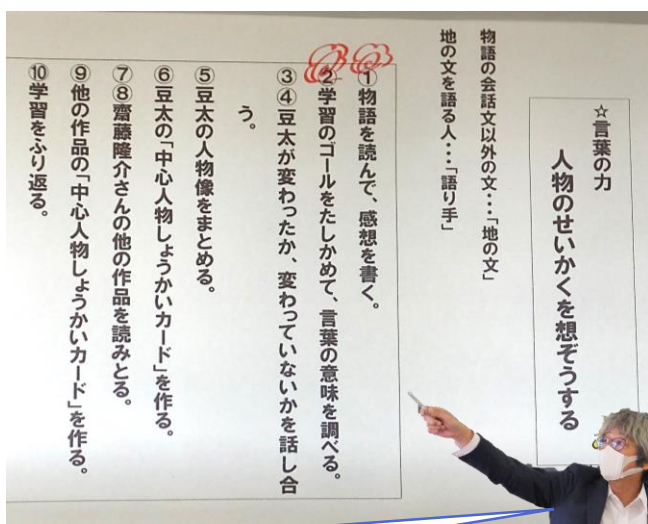 ☆言葉の力
人物のせいかくを想ぞうする
物語の会話文以外の文・・・「地の文」
地の文を語る人・・・「語り手」
①物語を読んで、感想を書く。
②学習のゴールをたしかめて、言葉の意味を調べる。
③④豆太が変わったか、変わっていないかを話し合
う。
⑤豆太の人物像をまとめる。
⑥豆太の「中心人物しょうかいカード」を作る。
⑦⑧齋藤隆介さんの他の作品を読みとる。
⑨他の作品の「中心人物しょうかいカード」を作る。
⑩学習をふり返る。